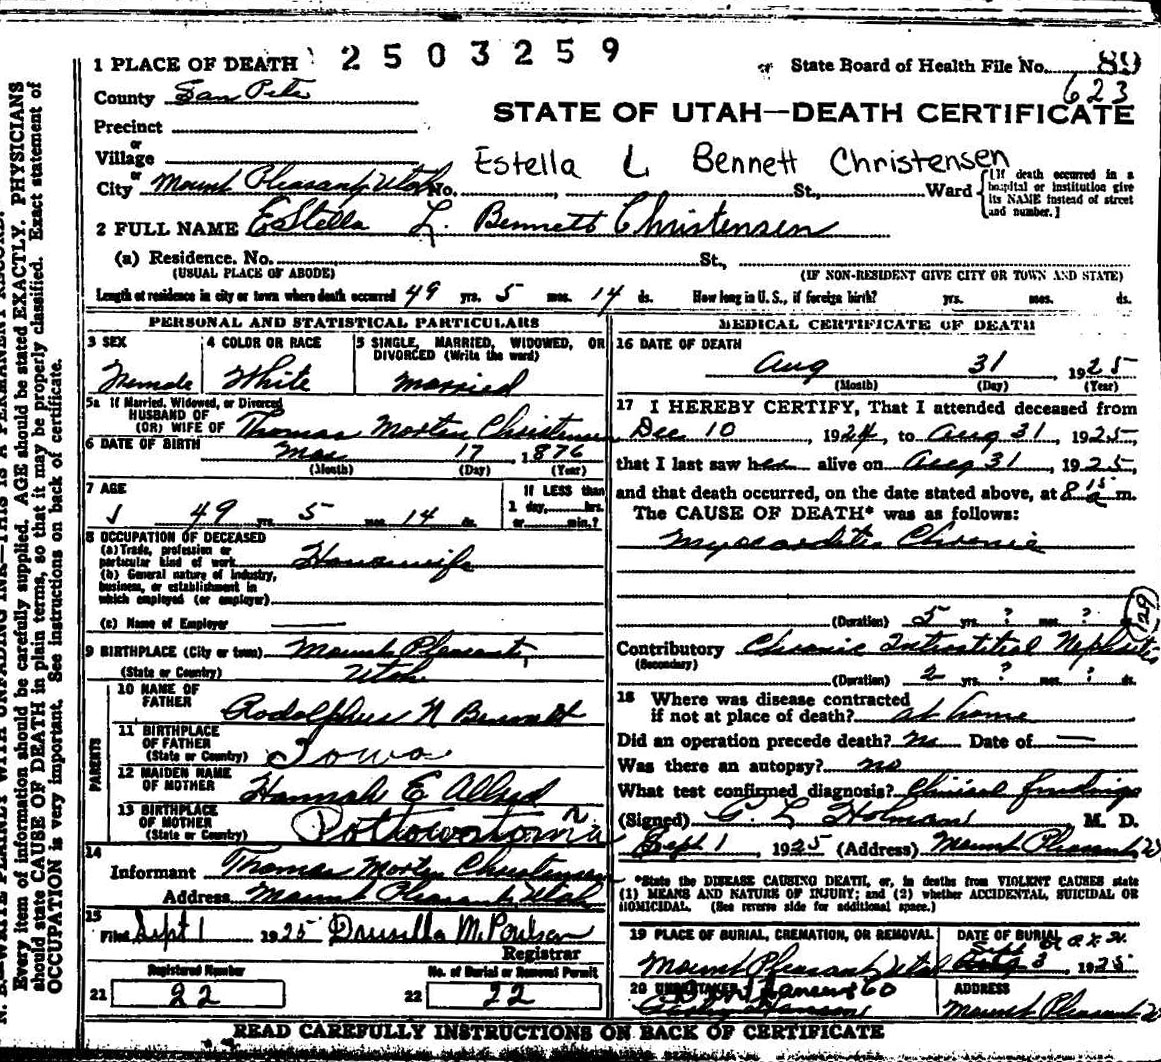 1 PLACE OF DEATH 2503259
State Board of Health File No. 89
623
County San Pete
STATE OF UTAH—DEATH CERTIFICATE
Precinct
or
Village
Estella L Bennett Christensen
or
City Mount Pleasant, Utah No. , St., Ward
[If death occurred in a
hospital or institution give
its NAME instead of street
and number.]
2 FULL NAME EStella L. Bennett Christensen
(a) Residence. No. St.,
(USUAL PLACE OF ABODE) (IF NON-RESIDENT GIVE CITY OR TOWN AND STATE)
Length of residence in city or town where death occurred 49 yrs. 5 mos. 14 ds. How long in U. S., if foreign birth? yrs. mos. ds.
PERSONAL AND STATISTICAL PARTICULARS
3 SEX 4 COLOR OR RACE 5 SINGLE, MARRIED, WIDOWED, OR
DIVORCED (Write the word)
Female White Married
5a If Married, Widowed, or Divorced
HUSBAND OF
(OR) WIFE OF Thomas Morten Christensen
6 DATE OF BIRTH Mar 17 1876
(Month) (Day) (Year)
7 AGE If LESS than
1 day, hrs.
49 yrs. 5 mos. 14 ds. or min.?
8 OCCUPATION OF DECEASED
(a) Trade, profession or
particular kind of work Housewife
(b) General nature of industry,
business, or establishment in
which employed (or employer)
(c) Name of Employer
9 BIRTHPLACE (City or town) Mount Pleasant,
(State or Country) Utah
PARENTS
10 NAME OF
FATHER Rodolphus N Bennett
11 BIRTHPLACE
OF FATHER
(State or Country) Iowa
12 MAIDEN NAME
OF MOTHER Hannah E Allred
13 BIRTHPLACE
OF MOTHER
(State or Country)
14
Informant Thomas Morten Christensen
Address Mount Pleasant, Utah
15
Filed Sept 1 1925 Drusilla M. Poulsen
Registrar
Registered Number No. of Burial or Removal Permit
21 22 22 22
MEDICAL CERTIFICATE OF DEATH
16 DATE OF DEATH
Aug 31 1925
(Month) (Day) (Year)
17 I HEREBY CERTIFY, That I attended deceased from
Dec 10, 1924, to Aug 31, 1925,
that I last saw her alive on Aug 31, 1925,
and that death occurred, on the date stated above, at 8 15 a m.
The CAUSE OF DEATH* was as follows:
Myocarditis Chronic
(Duration) 5 yrs. ? mos. ?
129
Contributory Chronic Interstitial Nephritis
(Secondary)
(Duration) 2 yrs. ? mos. ? ds.
18 Where was disease contracted
if not at place of death? at home
Did an operation precede death? no Date of —
Was there an autopsy? no
What test confirmed diagnosis? Clinical findings
(Signed) G. L Holman M. D.
Sept 1, 1925 (Address) Mount Pleasant,
*State the DISEASE CAUSING DEATH, or, in deaths from VIOLENT CAUSES state
(1) MEANS AND NATURE OF INJURY; and (2) whether ACCIDENTAL, SUICIDAL OR
HOMICIDAL. (See reverse side for additional space.)
19 PLACE OF BURIAL, CREMATION, OR REMOVAL DATE OF BURIAL
Mount Pleasant, Utah Sept 3, 1925
20 UNDERTAKER ADDRESS
Mount Pleasant
READ CAREFULLY INSTRUCTIONS ON BACK OF CERTIFICATE
N. B.—WRITE PLAINLY WITH UNFADING INK—THIS IS A PERMANENT RECORD.
Every item of information should be carefully supplied. AGE should be stated EXACTLY. PHYSICIANS
should state CAUSE OF DEATH in plain terms, so that it may be properly classified. Exact statement of
OCCUPATION is very important. See instructions on back of certificate.